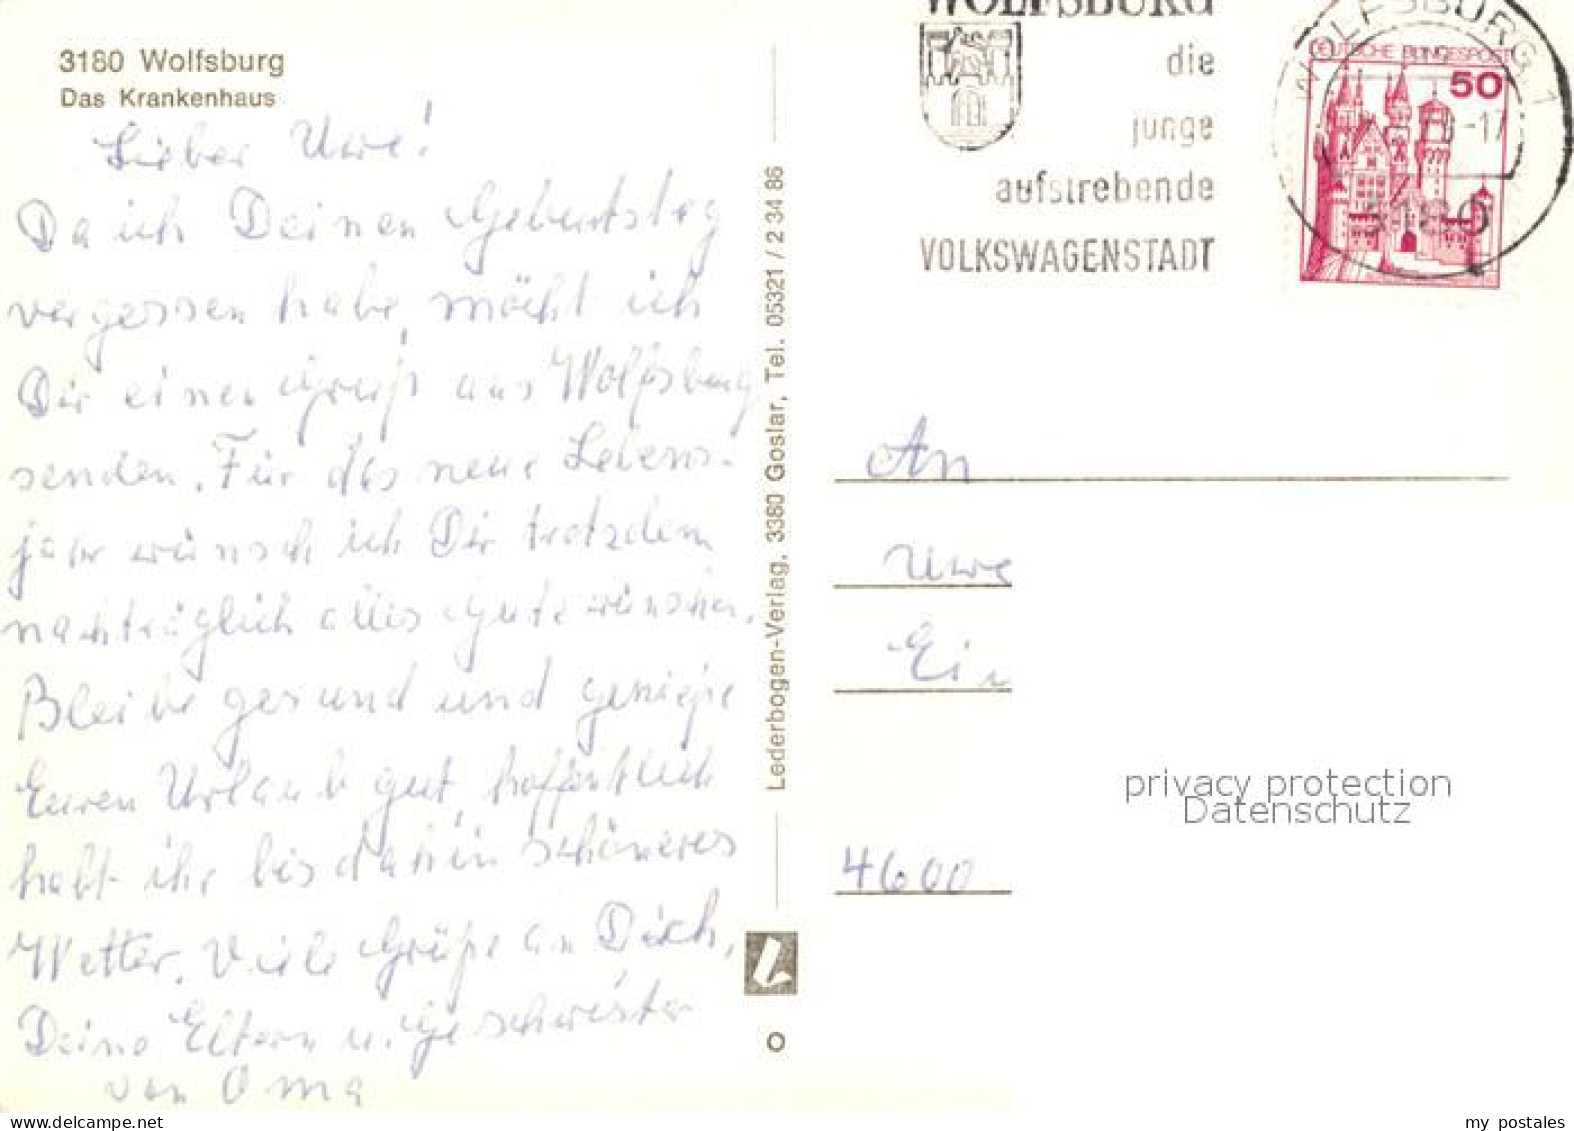 3180 Wolfsburg
Das Krankenhaus
Lieber Uwe!
Da ich Deinen Geburtstag
vergessen habe, möcht ich
Dir einen Gruß aus Wolfsburg
senden. Für das neue Lebens-
jahr wünsch ich Dir trotzdem
nachträglich alles Gute wünschen.
Bleibe gesund und genieße
Euren Urlaub gut, hoffentlich
habt ihr bis dahin schöneres
Wetter. Viele Grüße an Dich,
Deine Eltern u. Geschwister
von Oma
Lederbogen-Verlag, 3380 Goslar, Tel. 05321 / 2 34 86
O
WOLFSBURG
die
junge
aufstrebende
VOLKSWAGENSTADT
WOLFSBURG 1
-17
3180
DEUTSCHE BUNDESPOST
50
An
Uwe
4600
privacy protection
Datenschutz
my postales